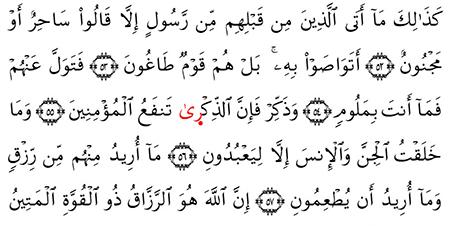 كَذَٰلِكَ مَآ أَتَى ٱلَّذِينَ مِن قَبْلِهِم مِّن رَّسُولٍ إِلَّا قَالُوا۟ سَاحِرٌ أَوْ
مَجْنُونٌ ﴿٥٢﴾ أَتَوَاصَوْا۟ بِهِۦ ۚ بَلْ هُمْ قَوْمٌ طَاغُونَ ﴿٥٣﴾ فَتَوَلَّ عَنْهُمْ
فَمَآ أَنتَ بِمَلُومٍ ﴿٥٤﴾ وَذَكِّرْ فَإِنَّ ٱلذِّكْرَىٰ تَنفَعُ ٱلْمُؤْمِنِينَ ﴿٥٥﴾ وَمَا
خَلَقْتُ ٱلْجِنَّ وَٱلْإِنسَ إِلَّا لِيَعْبُدُونِ ﴿٥٦﴾ مَآ أُرِيدُ مِنْهُم مِّن رِّزْقٍ
وَمَآ أُرِيدُ أَن يُطْعِمُونِ ﴿٥٧﴾ إِنَّ ٱللَّهَ هُوَ ٱلرَّزَّاقُ ذُو ٱلْقُوَّةِ ٱلْمَتِينُ